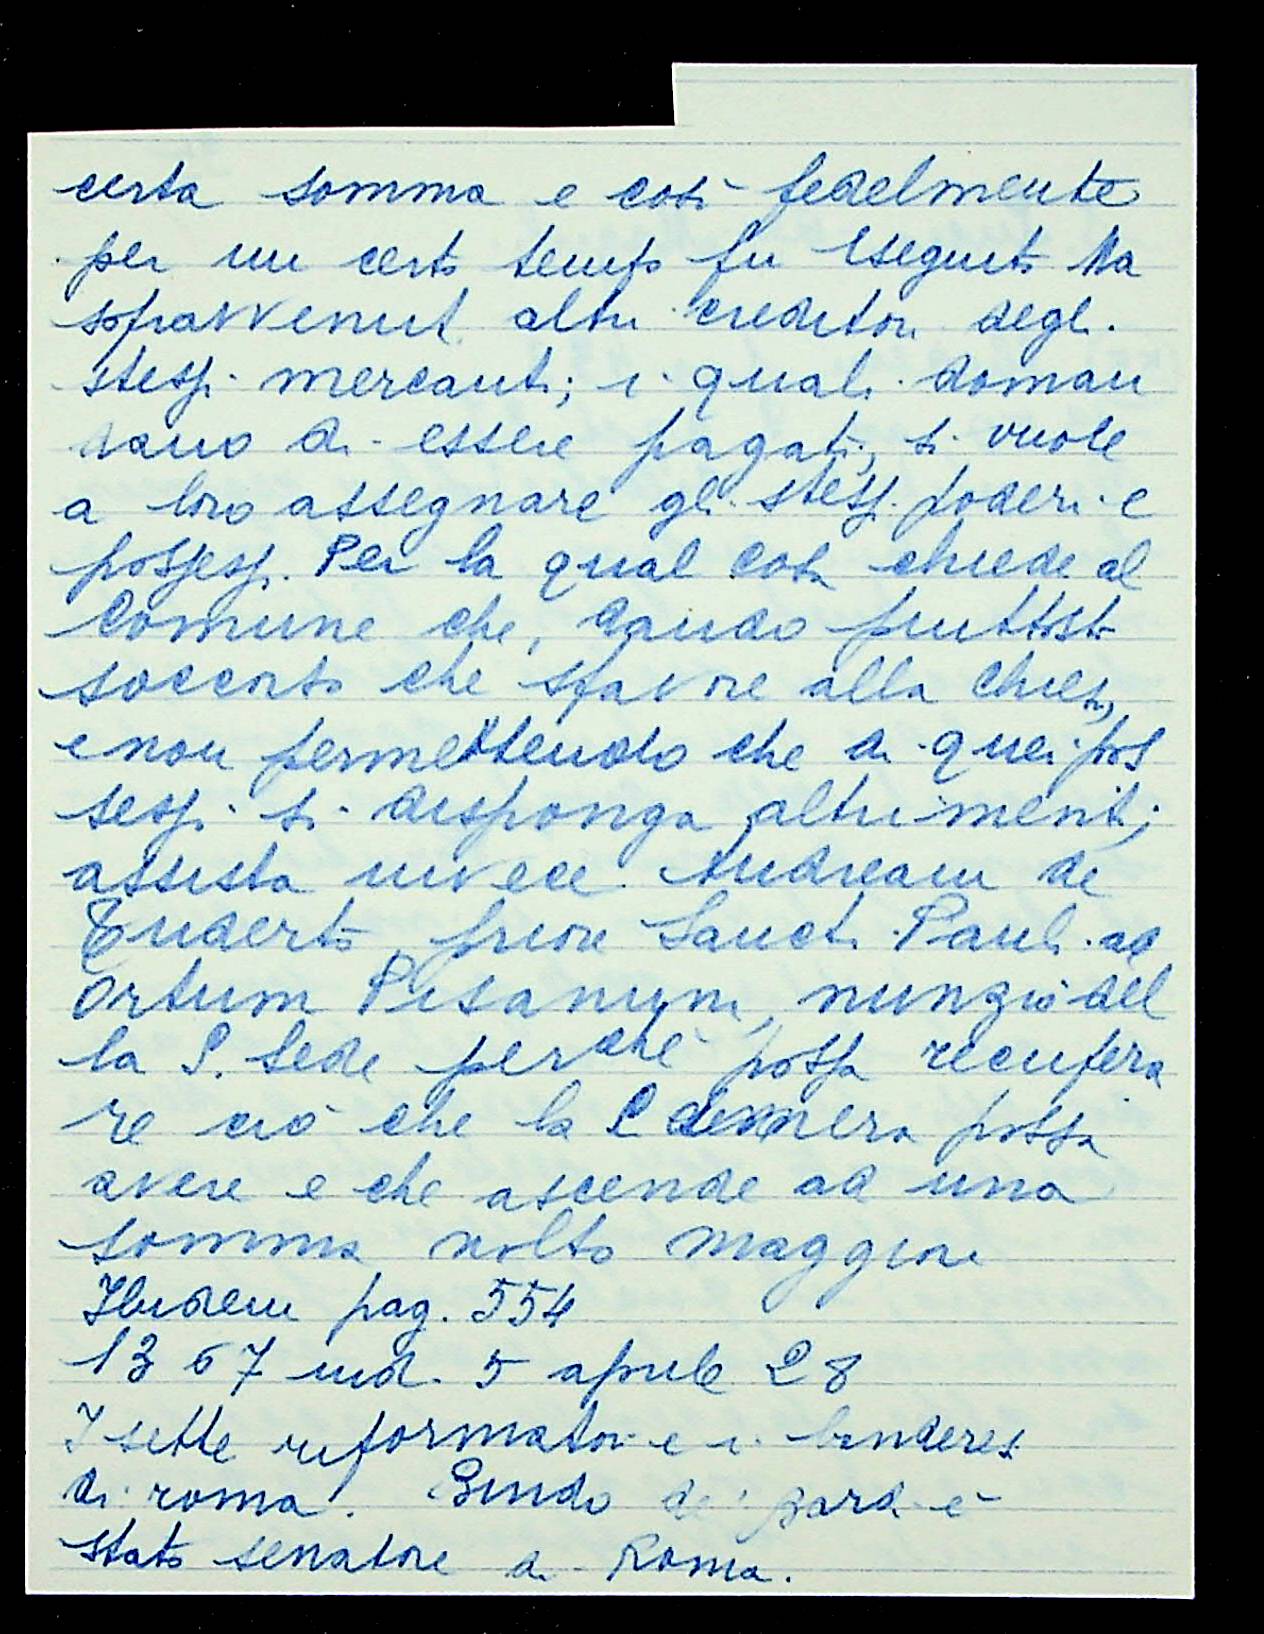 certa somma e così fedelmente
per un certo tempo fu eseguito Ma
sopravvenuti altri creditori degli
stessi mercanti, i quali doman
dano di essere pagati, si vuole
a loro assegnare gli stessi poderi e
possessi. Per la qual cosa chiede al
Comune che, dando piuttosto
soccorso che sfavore alla chiesa,
e non permettendo che di quei pos
sessi si disponga altrimenti,
assista invece Andream de
Tuderto, priore Sancti Pauli ad
Ortum Pisanum, nunzio del
la S. Sede perché possa recupera
re ciò che la Camera possa
avere e che ascende ad una
somma molto maggiore
Ibidem pag. 554
1367 ind. 5 aprile 28
I sette riformatori e i banderesi
di roma. Bindo de' è
stato senatore di Roma.